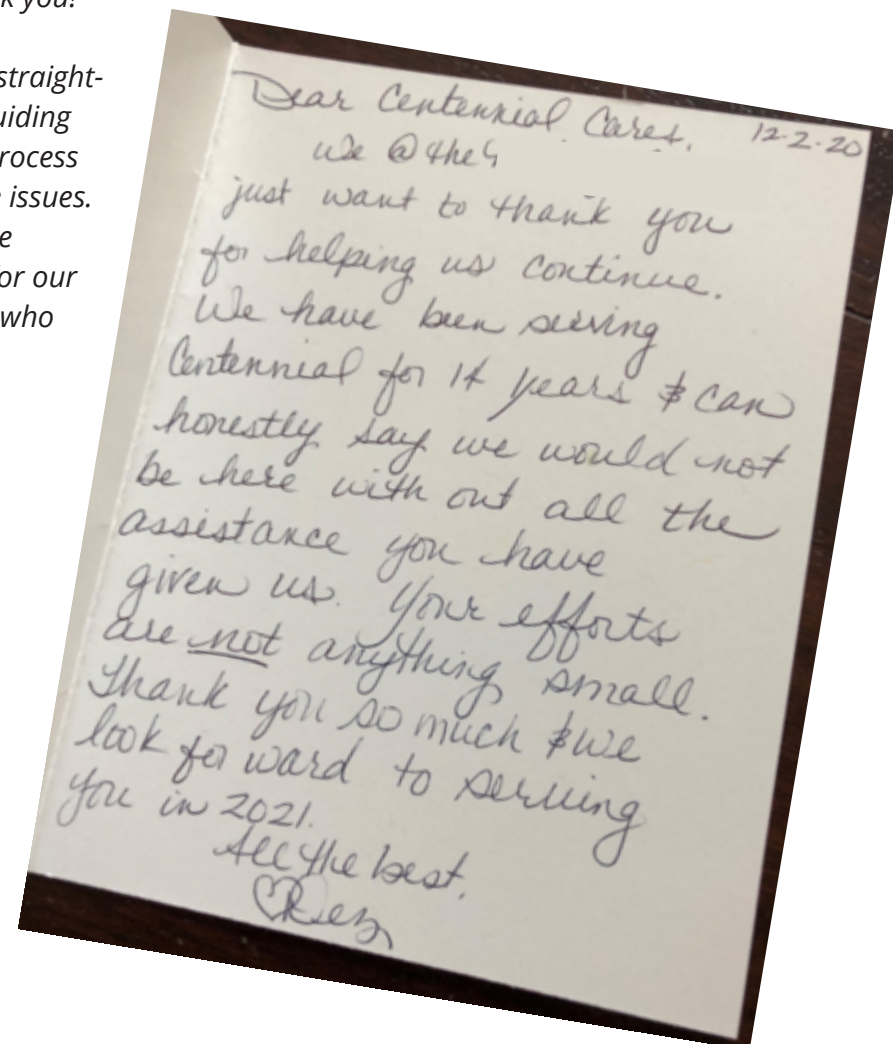 k you!
straight-
uiding
rocess
issues.
e
or our
who
12-2-20
Dear Centennial Cares,
We @ the
just want to thank you
for helping us continue.
We have been serving
Centennial for 14 years & can
honestly say we would not
be here with out all the
assistance you have
given us. Your efforts
are not anything small.
Thank you so much & we
look forward to serving
you in 2021.
All the best,